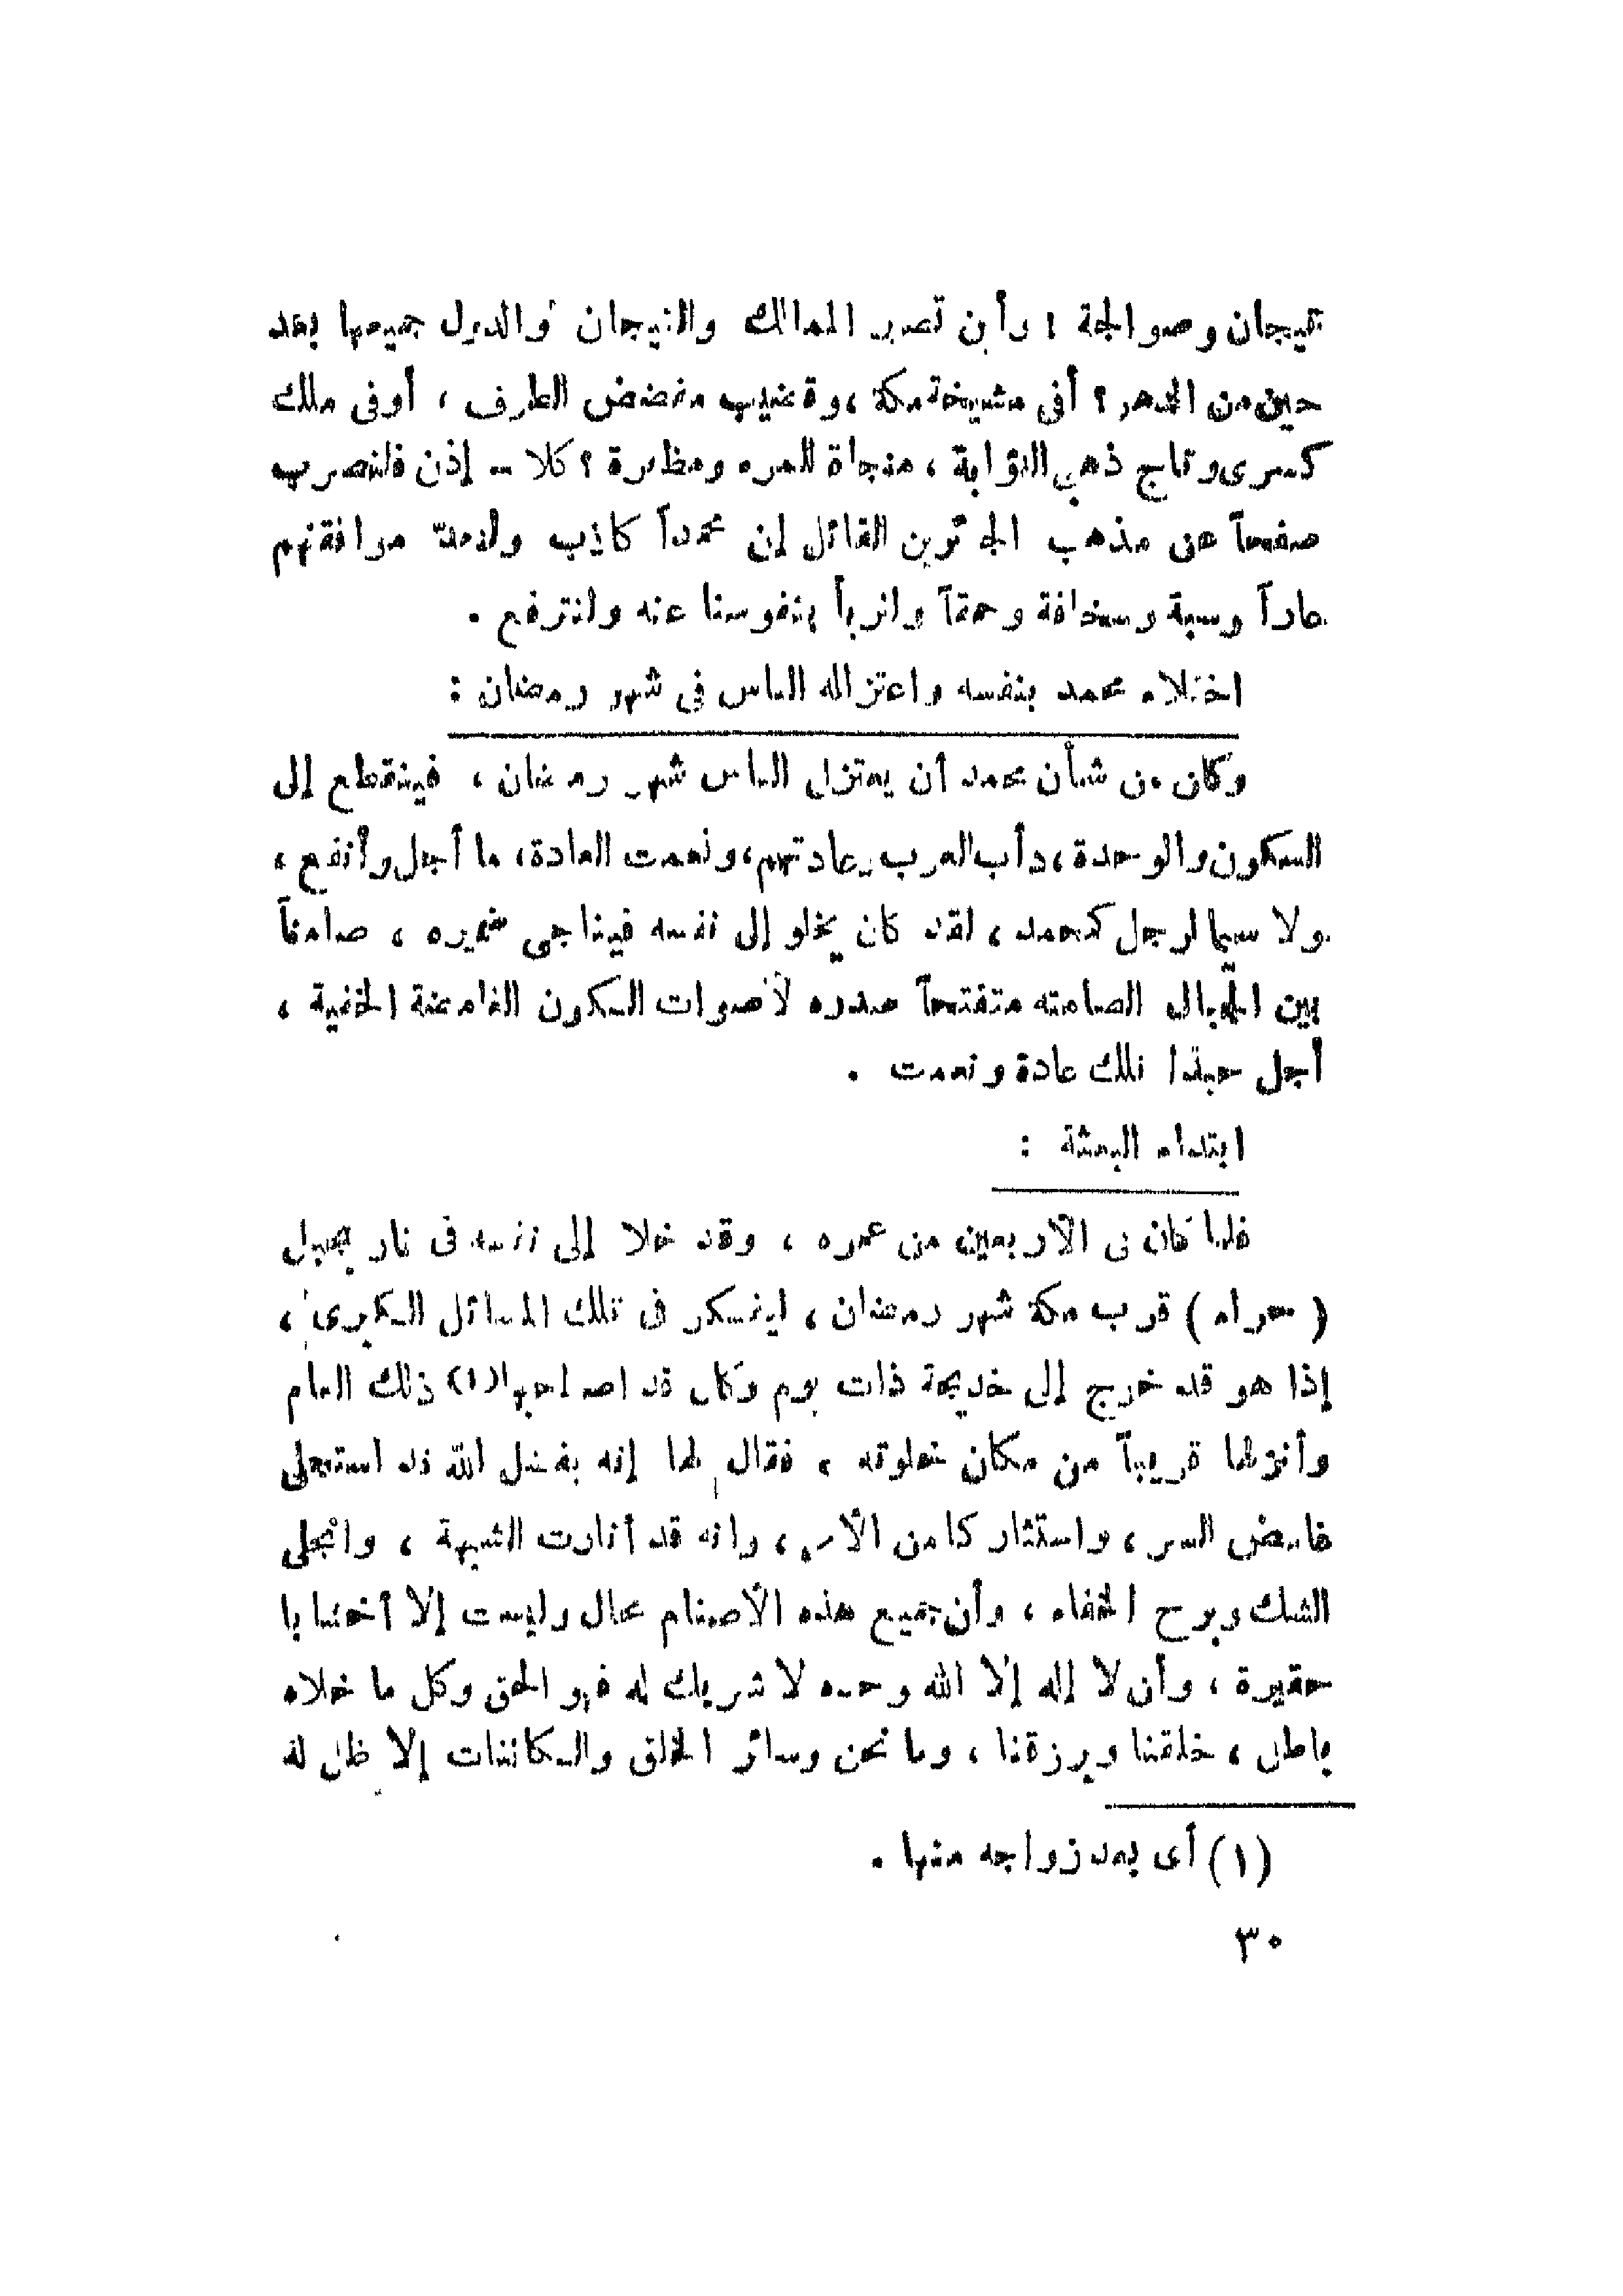 تيجان وصوالجة ؛ وأين تصير الممالك والتيجان والدول جميعها بعد
حين من الدهر ؟ أفى مشيخة مكة ، وقضيب مفضض الطرف ، أو فى ملك
كسرى وتاج ذهبى الذؤابة ، منجاة للمرء ومظفرة ؟ كلا -- إذن فلنضرب
صفحاً عن مذهب الجائرين القائل إن محمداً كاذب ولنعد موافقتهم
عاراً وسبة وسخافة وحمقاً ولنربأ بنفوسنا عنه ولنترفع .
اختلاء محمد بنفسه واعتزاله الناس فى شهر رمضان :
وكان من شأن محمد أن يعتزل الناس شهر رمضان ، فينقطع إلى
السكون والوحدة ، دأب العرب وعادتهم ، ونعمت العادة ، ما أجل وأنفع ،
ولا سيما لرجل كمحمد ، لقد كان يخلو إلى نفسه فيناجى ضميره ، صامتاً
بين الجبال الصامته متفتحاً صدره لأصوات السكون الغامضة الخفية ،
أجل حبذا تلك عادة ونعمت .
ابتداء البعثة :
فلما كان فى الأربعين من عمره ، وقد خلا إلى نفسه فى غار بجبل
( حراء ) قرب مكة شهر رمضان ، ليفكر فى تلك المسائل الكبرى ،
إذا هو قد خرج إلى خديجة ذات يوم وكان قد استصحبها (١) ذلك العام
وأنزلها قريباً من مكان خلوته ، فقال لها إنه بفضل الله قد استجلى
غامض السر ، واستثار كامن الأمر ، وانه قد أنارت الشبهة ، وانجلى
الشك وبرح الخفاء ، وأن جميع هذه الأصنام محال وليست إلا أخشابا
حقيرة ، وأن لا إله إلا الله وحده لا شريك له فهو الحق وكل ما خلاه
باطل ، خلقنا ويرزقنا ، وما نحن وسائر الخلق والكائنات إلا ظل له
(١) أى بعد زواجه منها .
٣٠